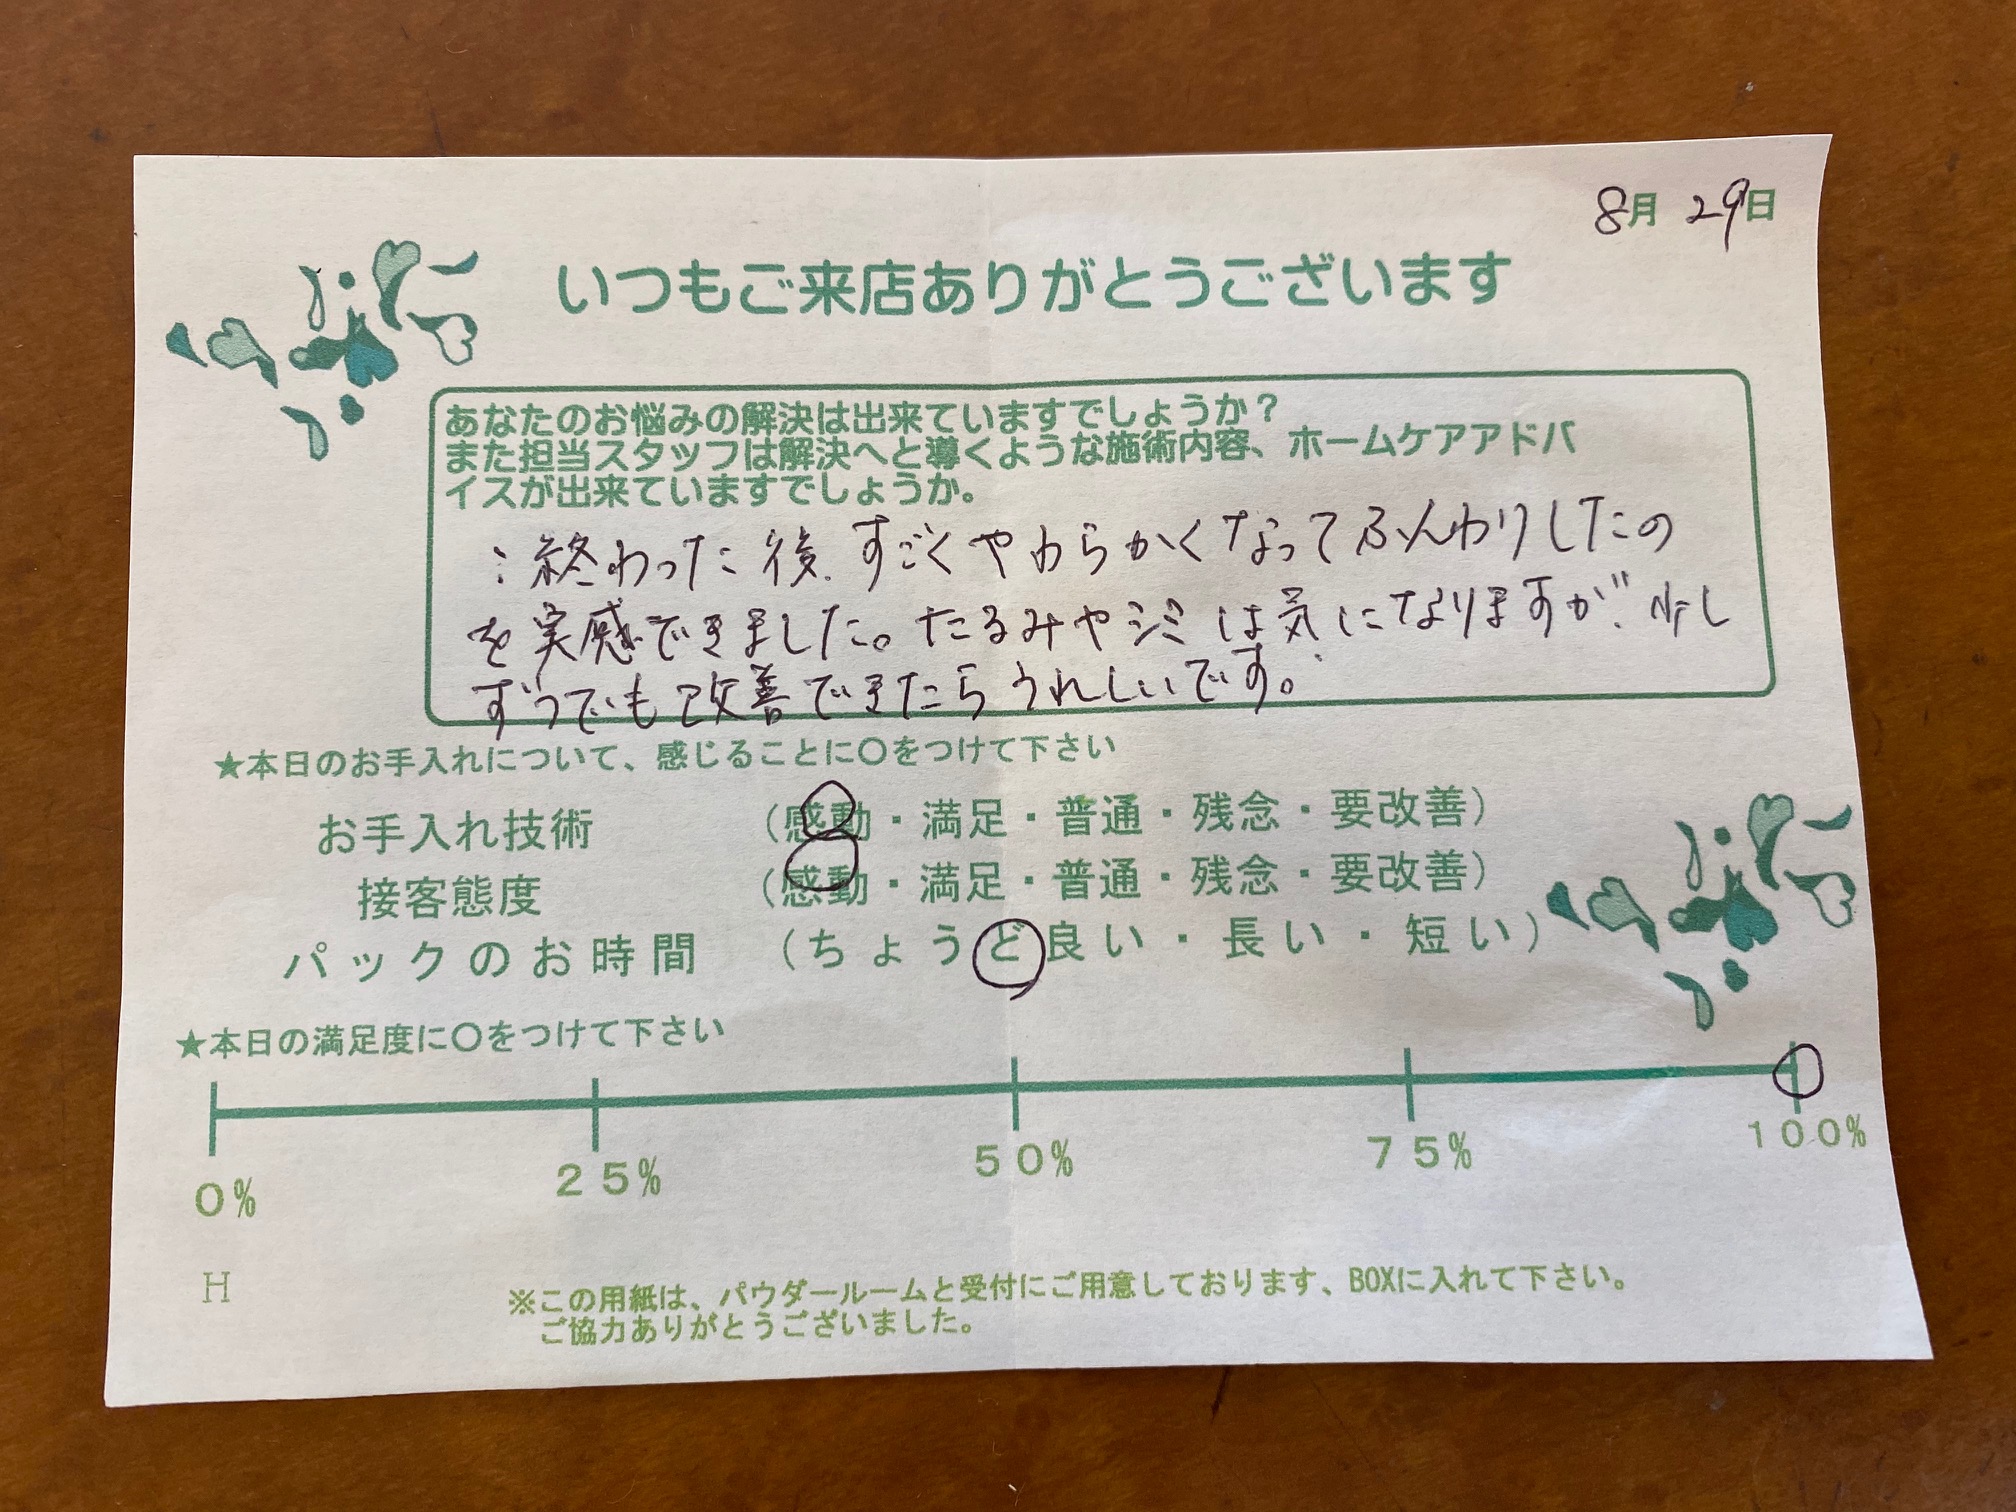 8月 29日
いつもご来店ありがとうございます
あなたのお悩みの解決は出来ていますでしょうか？
また担当スタッフは解決へと導くような施術内容、ホームケアアドバ
イスが出来ていますでしょうか。
：終わった後、すごくやわらかくなってふんわりしたの
を実感できました。たるみやシミは気になりますが、少し
ずつでも改善できたらうれしいです。
★本日のお手入れについて、感じることに〇をつけて下さい
お手入れ技術 （感動・満足・普通・残念・要改善）
接客態度 （感動・満足・普通・残念・要改善）
パックのお時間 （ちょうど良い・長い・短い）
★本日の満足度に〇をつけて下さい
0% 25% 50% 75% 100%
H
※この用紙は、パウダールームと受付にご用意しております、BOXに入れて下さい。
ご協力ありがとうございました。